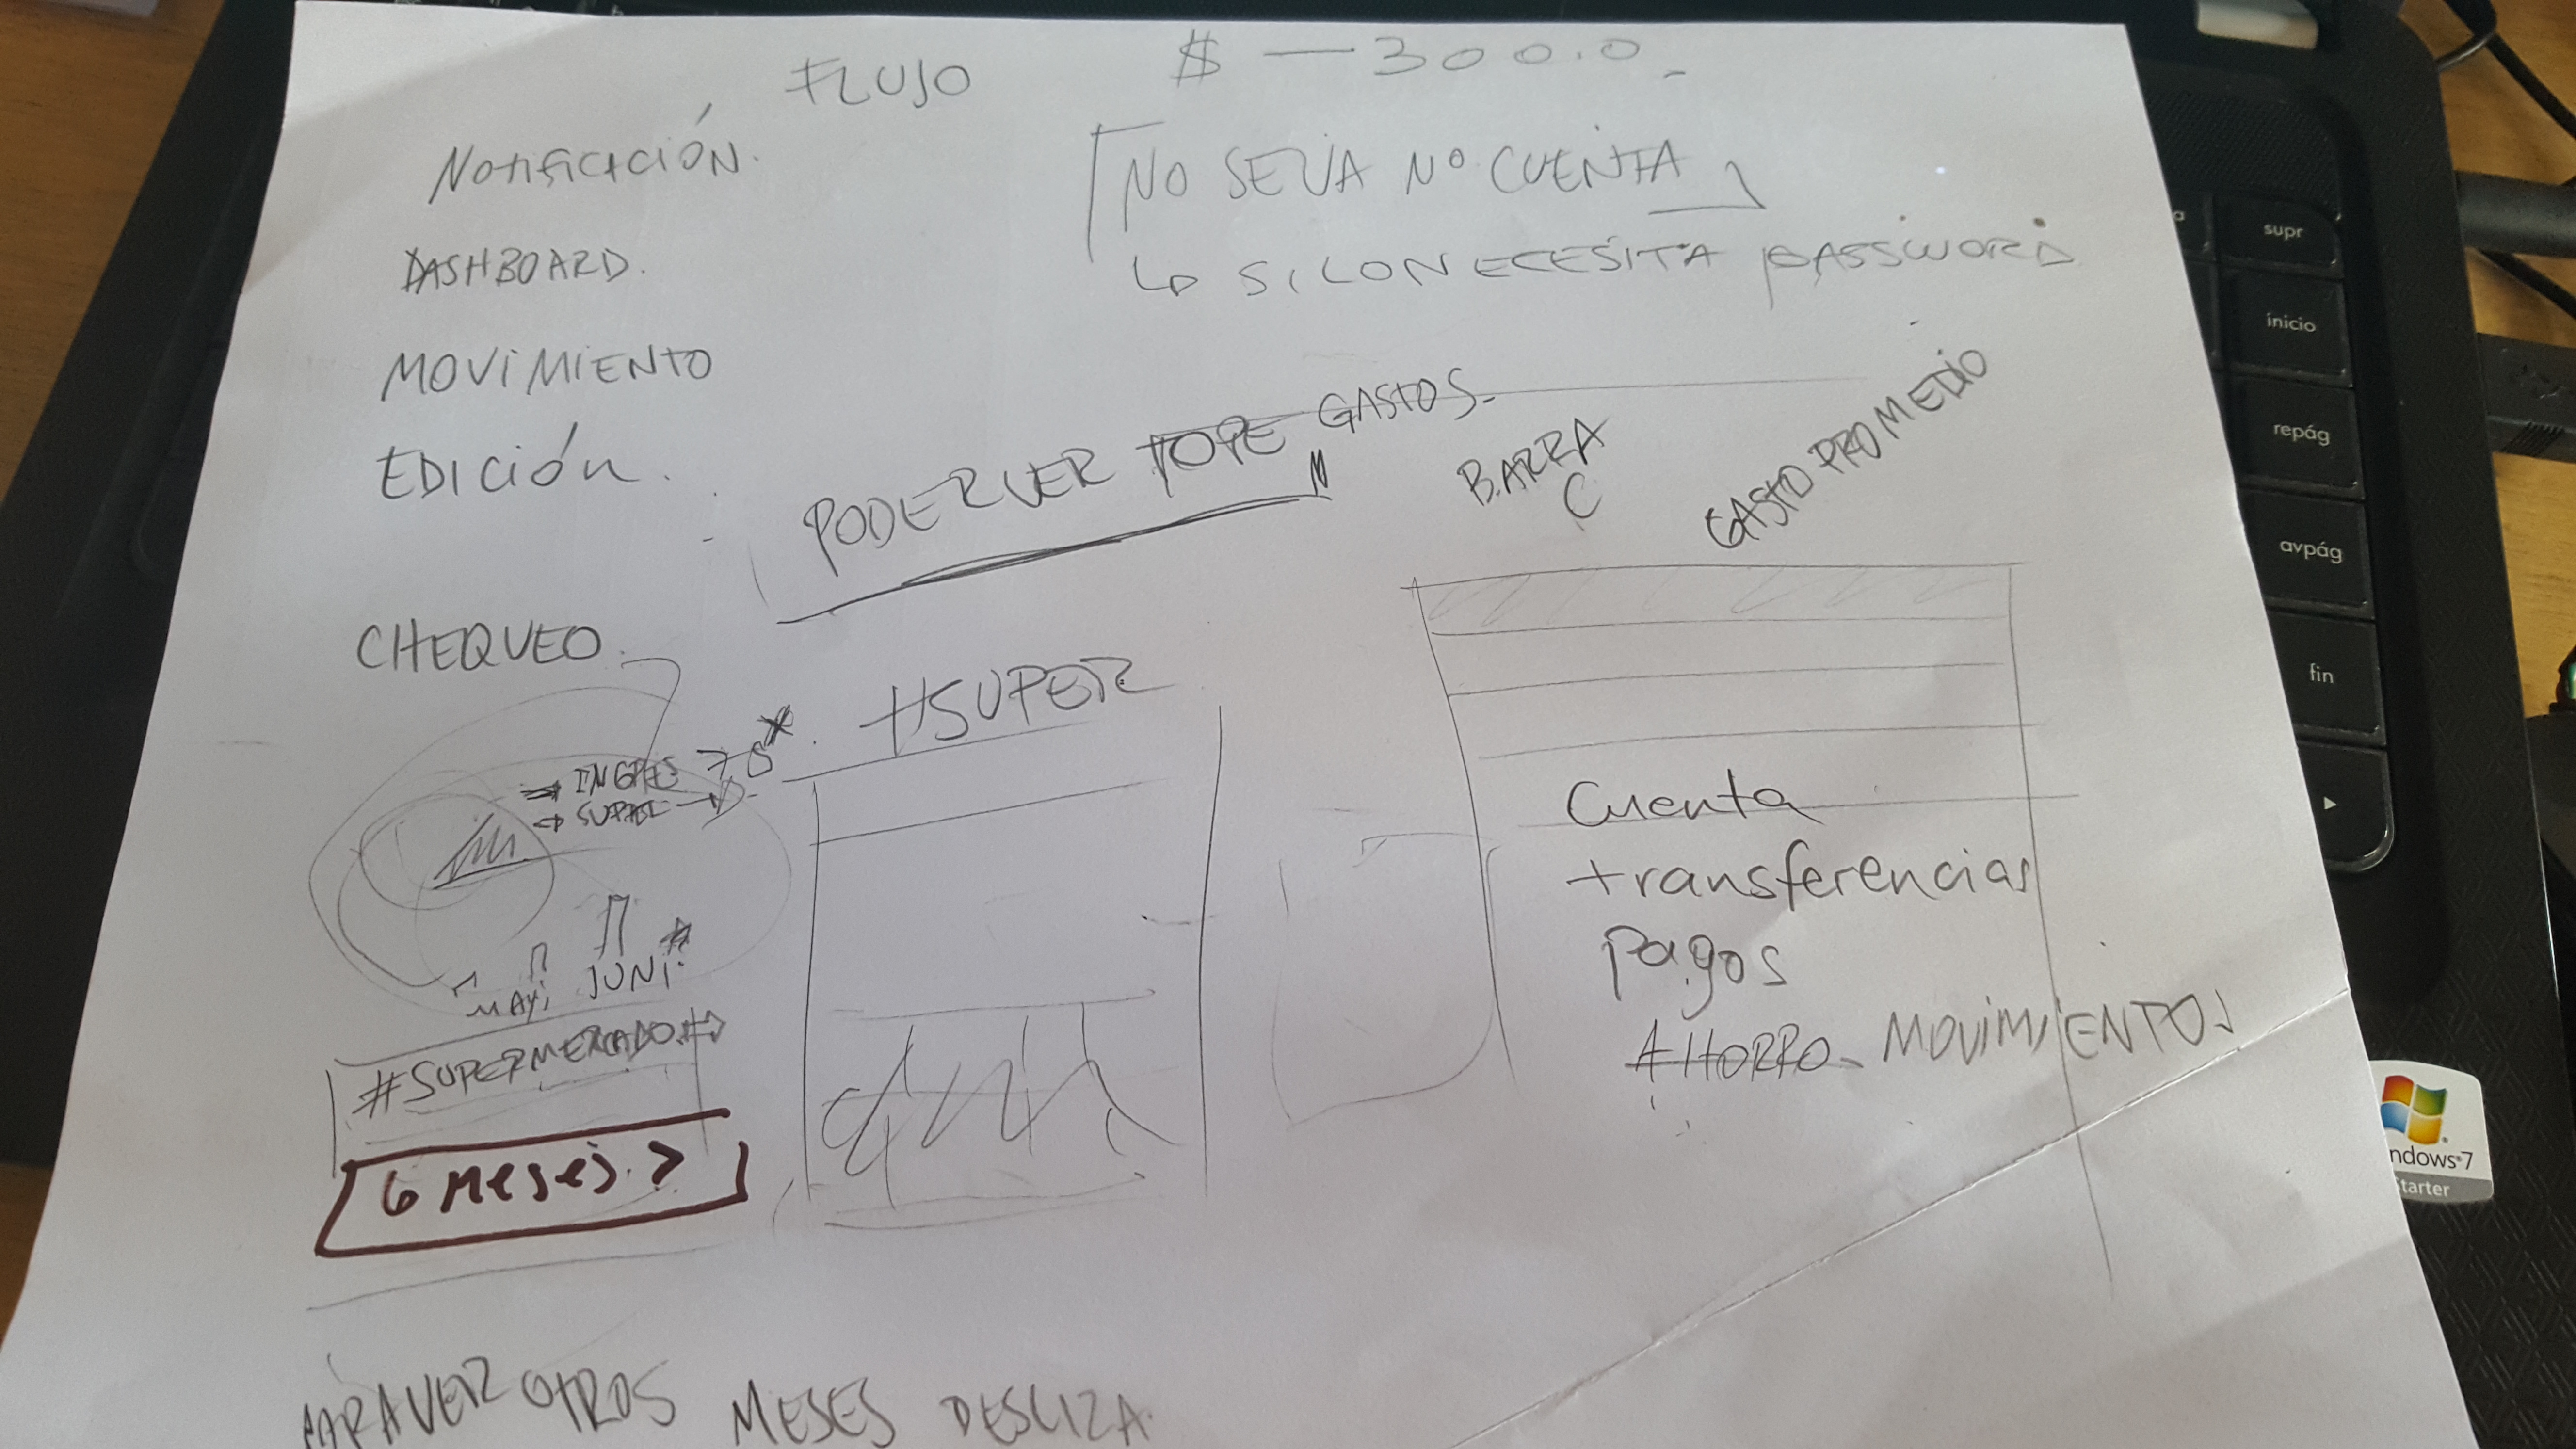 FLUJO
$ — 300.0_
Notificación.
DASHBOARD.
MOVIMIENTO
EDICIÓN.
CHEQUEO.
NO SE VA Nº CUENTA
PASSWORD
PODER VER TOPE GASTOS-
BARRA
C
GASTO PROMEDIO
#SUPER
JUNI
#SUPERMERCADO.
6 meses. >
Cuenta
transferencias
pagos
AHORRO - MOVIMIENTOS
VER OTROS MESES DESLIZA.
supr
inicio
repág
avpág
fin
ndows 7
tarter